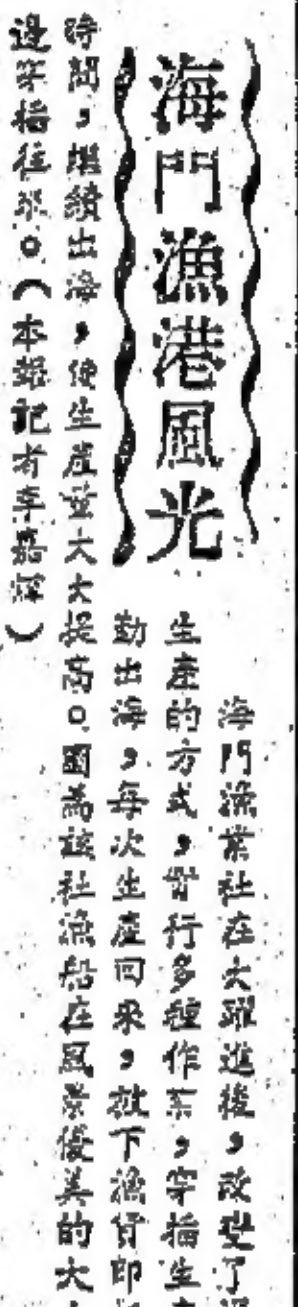 海門漁港風光
海門漁業社在大躍進後，改變了
生產的方式，實行多種作業，穿插生
勤出海，每次生產回來，放下漁貨即
時間，繼續出海，使生產量大大提高。因為該社漁船在風景優美的大
邊穿插往來。（本報記者李